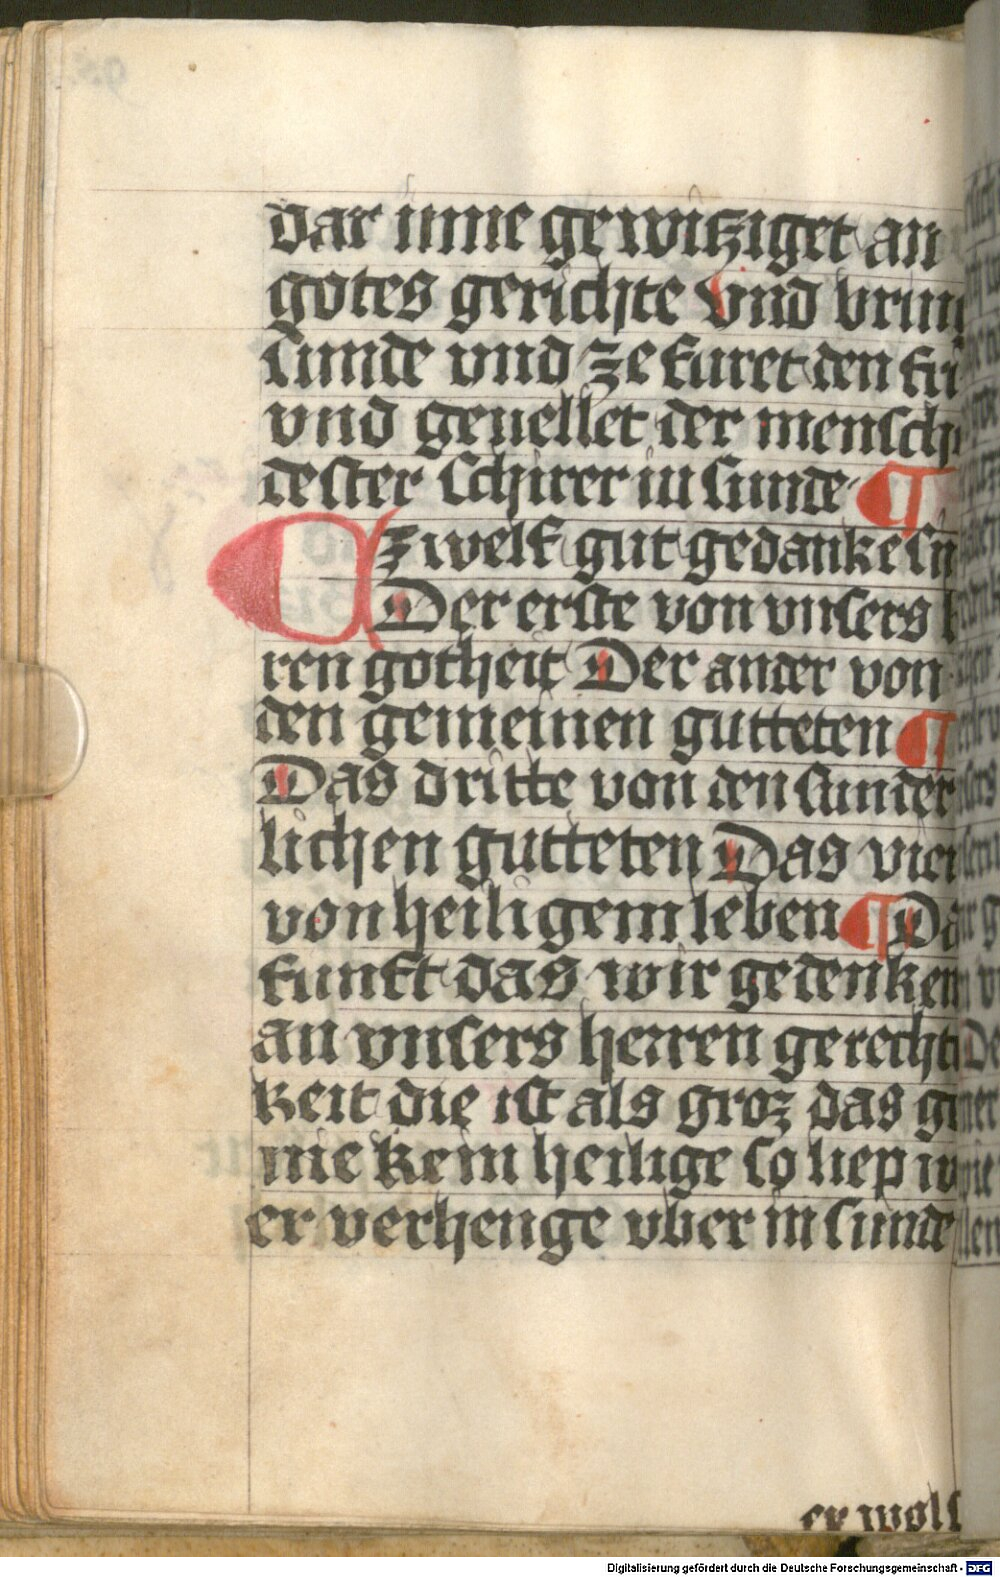 dar inne gewitziget an
gotes gerichte vnd bring
sunde vnd ze furet den fri
vnd geuellet der mensch
dester schirer in sunde ¶
Ez zwelf gut gedanke sin
Der erste von vnsers h
ren gotheit Der ander von
den gemeinen gutteten ¶
Das dritte von den sunder
lichen gutteten Das vier
von heiligem leben ¶ Daz
funft das wir gedenken
an vnsers herren gerechti
keit die ist als groz das g
nie kein heilige so liep w
er verhenge vber in sunde
er wols
Digitalisierung gefördert durch die Deutsche Forschungsgemeinschaft - DFG